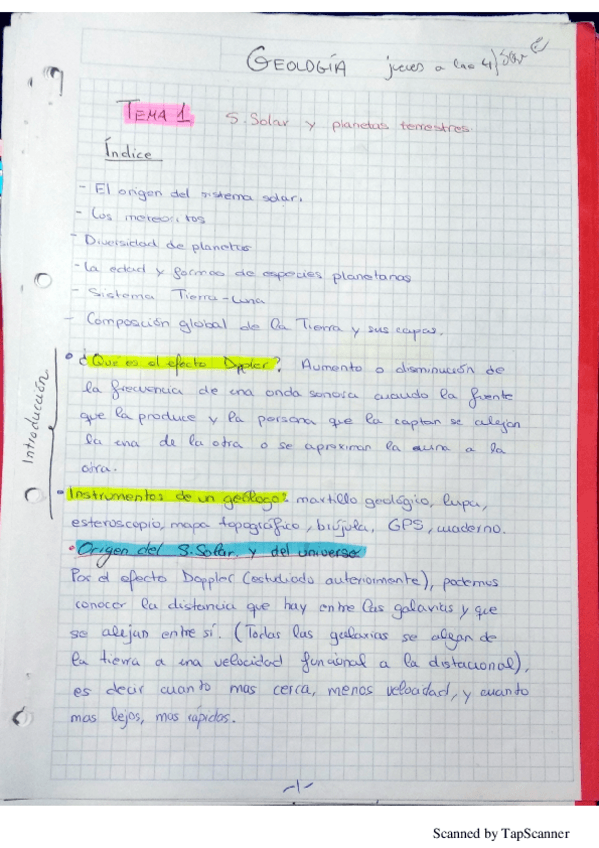 GEOLOGÍA jueves a las
TEMA 1 S. Solar y planetas terrestres.
Índice
- El origen del sistema solar.
- Los meteoritos
- Diversidad de planetas
- La edad y formas de especies planetarias
- Sistema Tierra-Luna
- Composición global de la Tierra y sus capas.
Introducción
• ¿Qué es el efecto Doppler? Aumento o disminución de
la frecuencia de una onda sonora cuando la fuente
que la produce y la persona que la captan se alejan
la una de la otra o se aproximan la una a la
otra.
• Instrumentos de un geólogo: martillo geológio, lupa,
esteroscopio, mapa topográfico, brújula, GPS, cuaderno.
• Origen del S. Solar y del universo
Por el efecto Doppler (estudiado anteriormente), podemos
conocer la distancia que hay entre las galaxias y que
se alejan entre sí. (Todas las galaxias se alejan de
la tierra a una velocidad funcional a la distacional),
es decir cuanto mas cerca, menos velocidad, y cuanto
mas lejos, mas rápidas.
-1-
Scanned by TapScanner